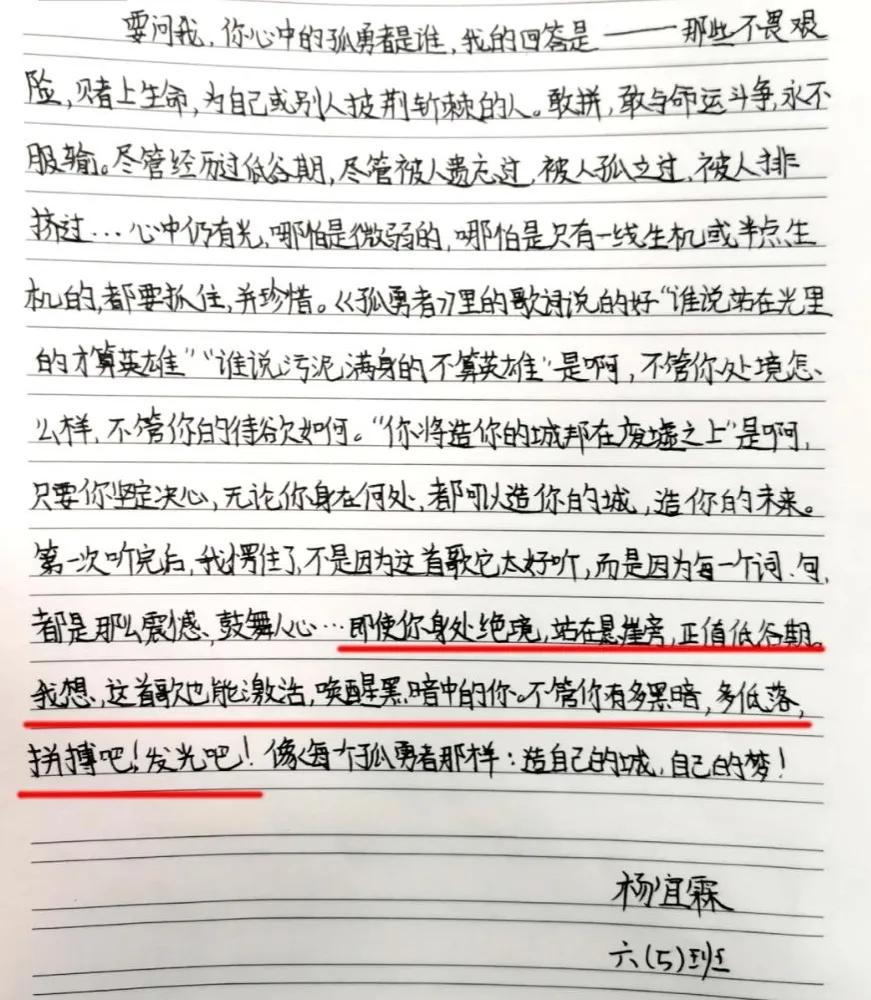 要问我，你心中的孤勇者是谁，我的回答是——那些不畏艰
险，赌上生命，为自己或别人披荆斩棘的人。敢拼，敢与命运斗争，永不
服输。尽管经历过低谷期，尽管被人遗忘过，被人孤立过，被人排
挤过…心中仍有光，哪怕是微弱的，哪怕是只有一线生机或半点生
机的，都要抓住，并珍惜。《孤勇者》里的歌词说的好“谁说站在光里
的才算英雄”“谁说污泥满身的不算英雄”是啊，不管你处境怎
么样，不管你的待欲如何。“你将造你的城邦在废墟之上”是啊，
只要你坚定决心，无论你身在何处，都可以造你的城，造你的未来。
第一次听完后，我愣住了，不是因为这首歌它太好听，而是因为每一个词、句，
都是那么震憾、鼓舞人心…即使你身处绝境，站在悬崖旁，正值低谷期。
我想，这首歌也能激活，唤醒黑暗中的你。不管你有多黑暗，多低落，
拼搏吧！发光吧！像每个孤勇者那样：造自己的城，自己的梦！
杨宜霖
六(5)班